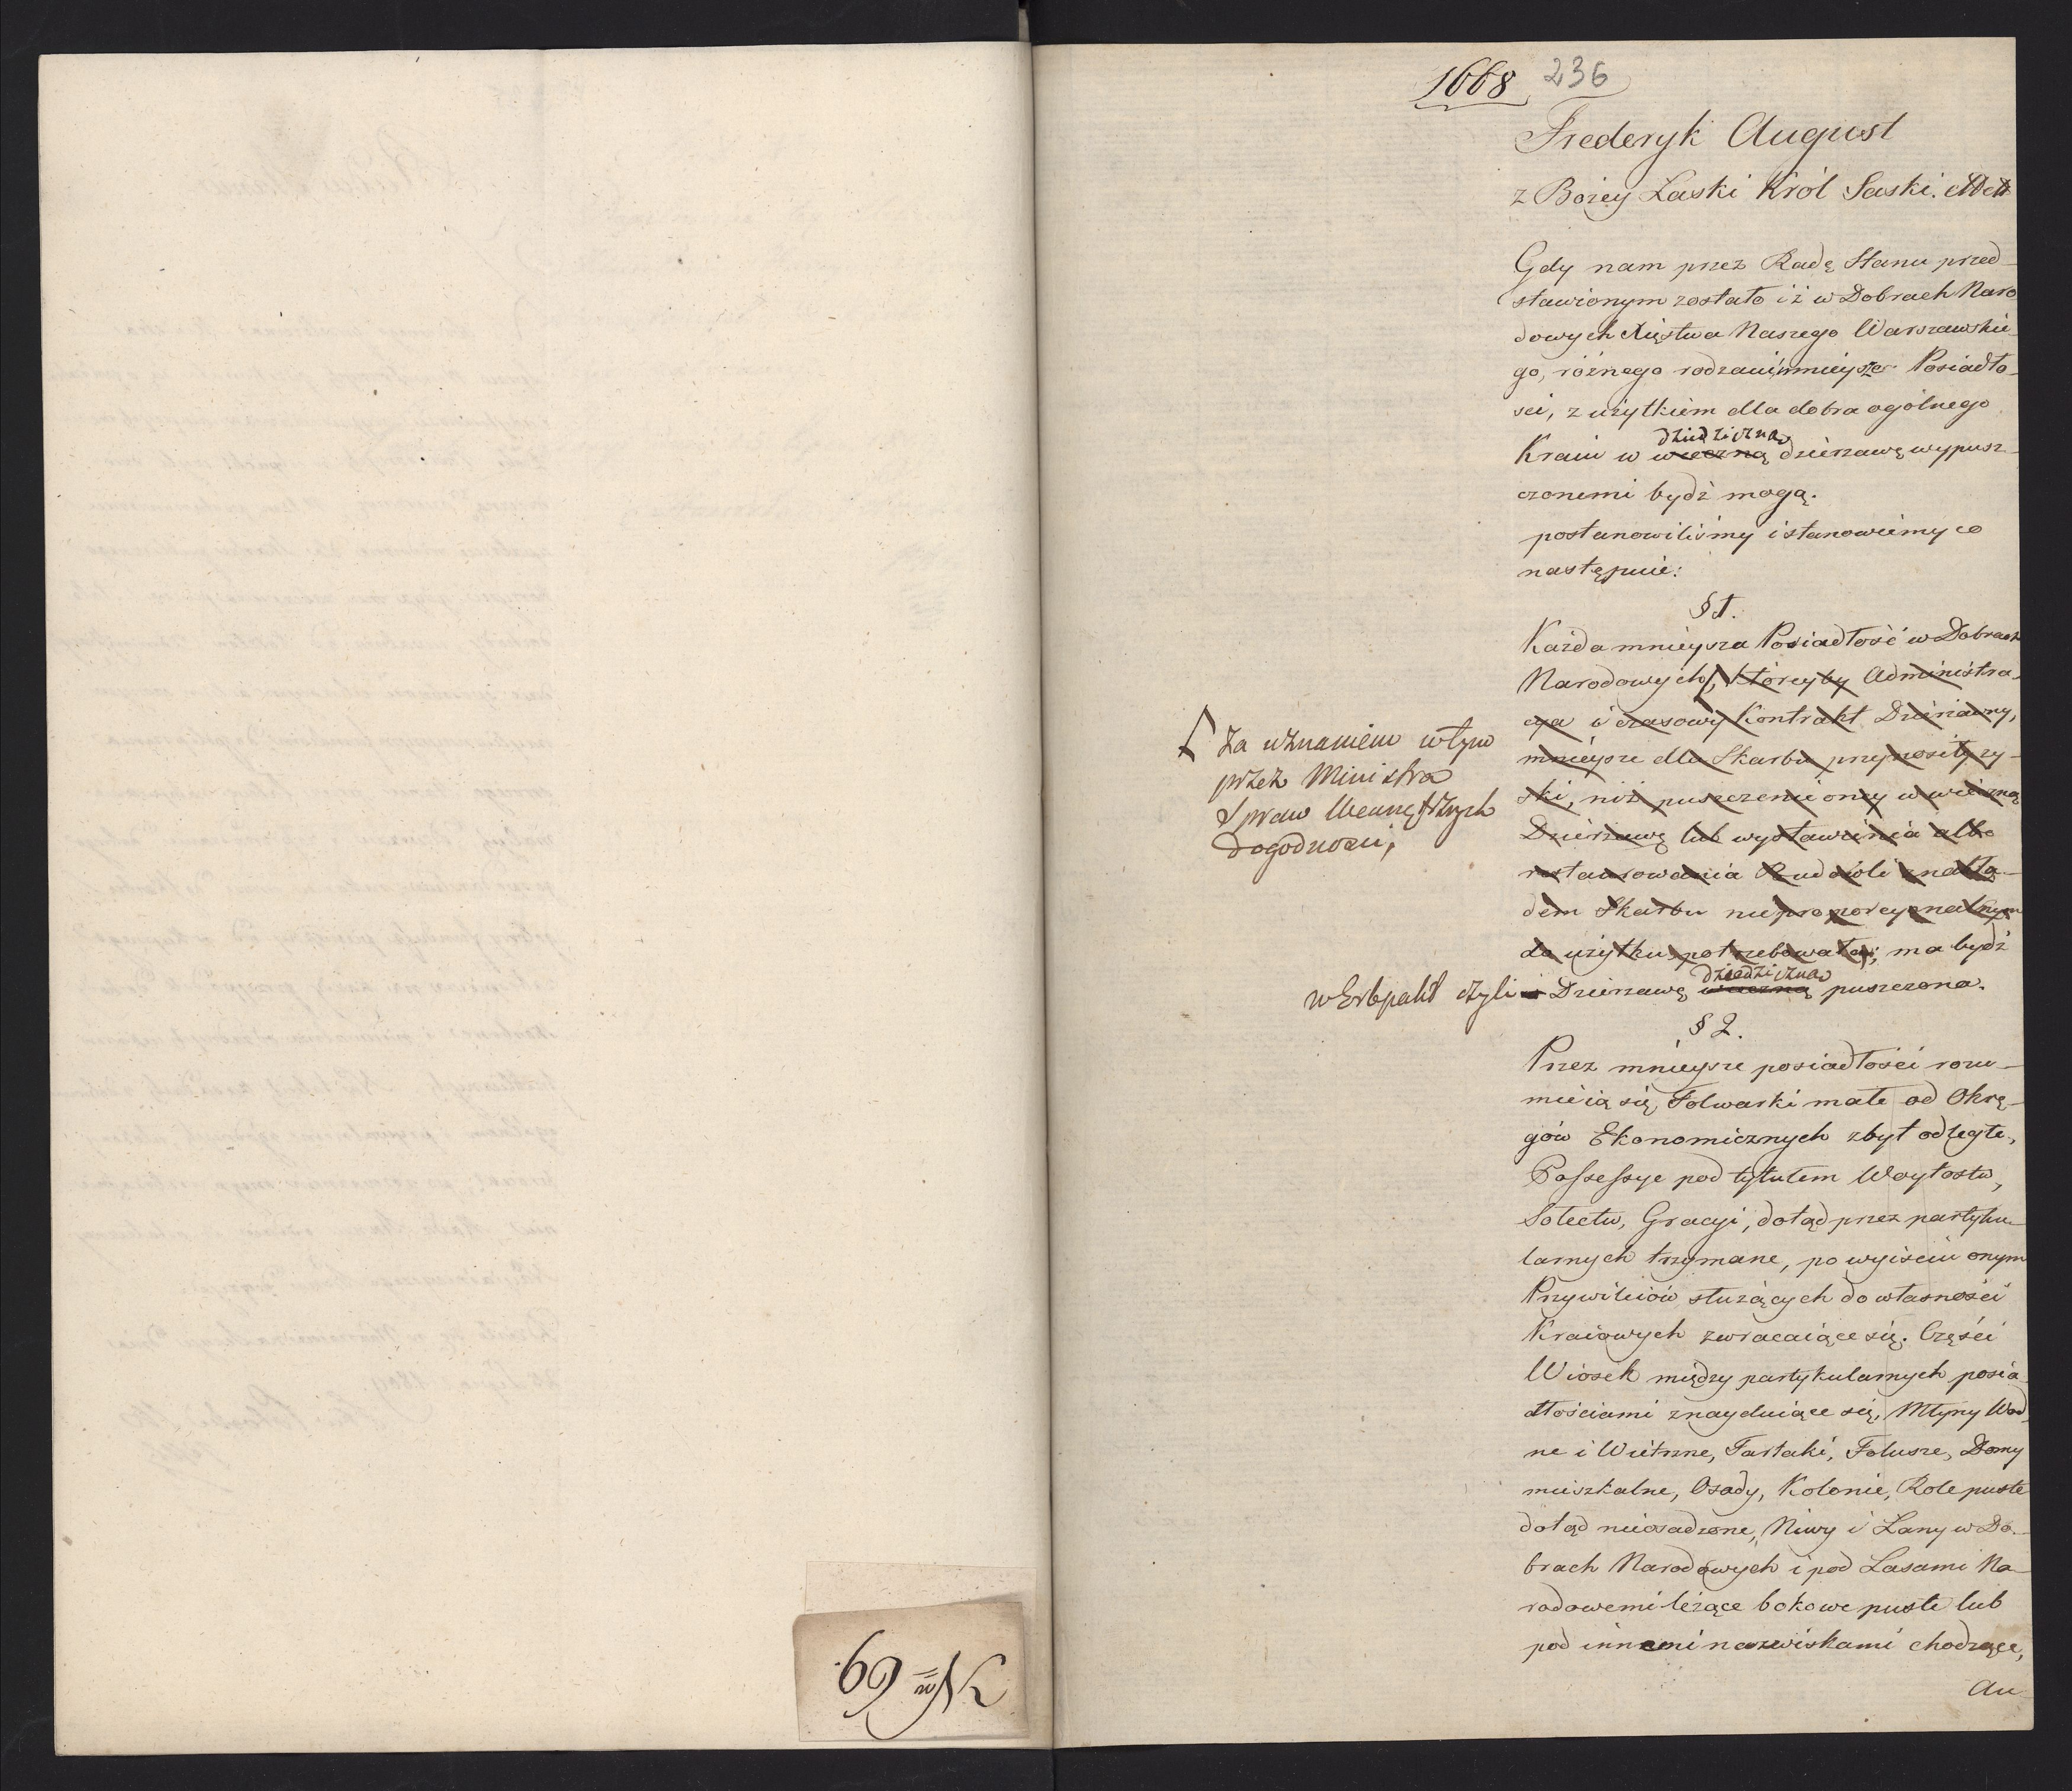 1668 236
Frederyk August
z Bożey Łaski Król Saski. etc etc
Gdy nam przez Radę Stanu przed-
stawionym zostało iż w Dobrach Naro
dowych Xięstwa Naszego Warszawskie-
go, różnego rodzaiu mnieysze Posiadło-
ści, z użytkiem dla dobra ogólnego
dziedziczną
Kraiu w wieczną dzierżawę wypusz-
czonemi bydź mogą.
postanowiliśmy i stanowiemy co
następuie:
§ 1.
Każda mnieysza Posiadłość w Dobrach
Narodowych, którеyby Administra-
cya i czasowy Kontrakt Dzierżawny,
mnieysze dla Skarbu przynosiły zy-
ski, niż puszczenie oney w wieczną
Dzierżawę lub wystawienia albo
restaurowania Budowli znakła-
dem Skarbu nieproporcyonalnym
do użytku potrzebowała; ma bydź
dziedziczną
w Erbpakt czyli w Dzierzawę wieczną puszczona.
za uznaniem w tym
przez Ministra
Spraw Wewnętrznych
dogodności,
§ 2.
Przez mnieysze posiadłości rozu-
mieią się, Folwarki małe od Okrę-
gów Ekonomicznych zbyt odległe,
Possessye pod tytułem Woytostw,
Sołectw, Gracyi, dotąd przez partyku-
larnych trzymane, po wyiściu onym
Przywileiów służących do własności
Kraiowych zwracaiące się. Części
Wiosek między partykularnych posia
dłościami znayduiące się, Młyny Wod
ne i Wietrzne, Tartaki, Folusze, Domy
mieszkalne, Osady, Kolonie, Role puste
dotąd nieosadzone, Niwy i Łany w Do-
brach Narodowych i pod Lasami Na-
rodowemi leżące bokowe puste lub
pod innemi nazwiskami chodzące,
au-
69